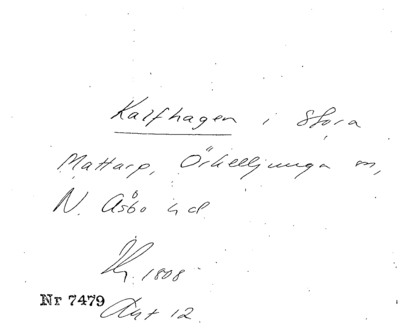 Kalfhagen i Stora
Mattarp, Örkelljunga sn,
N. Åsbo hd
1808
Nr 7479
Akt 12